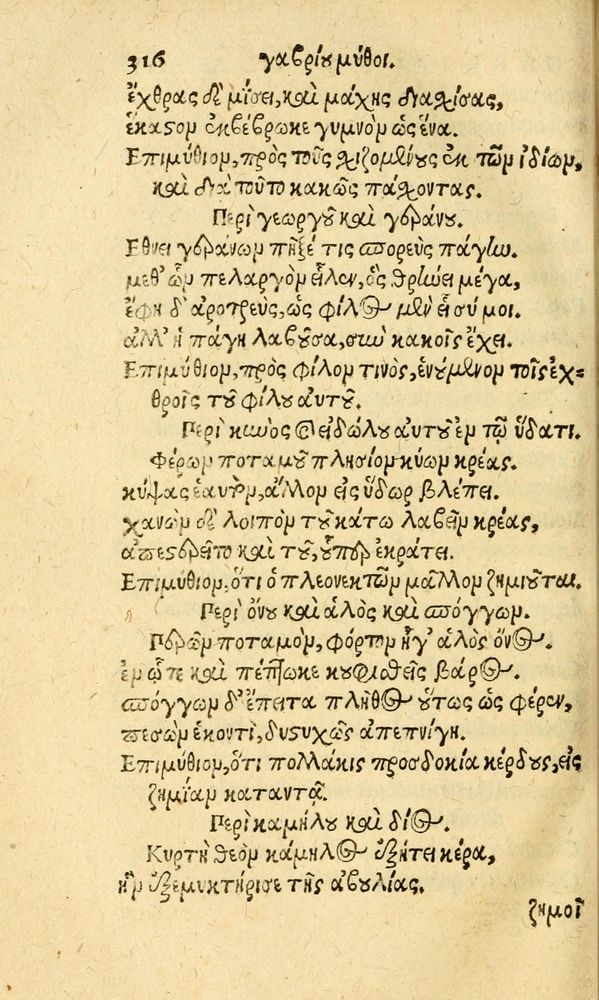 316 γαβρίου μῦθοι.
ἔχθρας δὲ μίσει, καὶ μάχης διασχίσας,
ἕκαστον ἐκβέβρωκε γυμνὸν ὡς ἕνα.
Επιμύθιον, πρὸς τοὺς σχιζομένους ἐκ τῶν ἰδίων,
καὶ διὰ τοῦτο κακῶς πάσχοντας.
Περὶ γεωργοῦ καὶ γεράνου.
Εθνει γεράνων πῆξέ τις σπορεὺς πάγην.
μεθ᾽ ὧν πελαργὸν εἷλεν, ὃς θρηνεῖ μέγα,
ἔφη δ᾽ ἀροτρεὺς, ὡς φίλος μὲν εἶ σύ μοι.
ἀλλ᾽ ἡ πάγη λαβοῦσα, σὺν κακοῖς ἔχει.
Επιμύθιον, πρὸς φίλον τινὸς, ἑνούμενον τοῖς ἐχ-
θροῖς τοῦ φίλου αὐτοῦ.
Περὶ κυνὸς καὶ εἰδώλου αὐτοῦ ἐν τῷ ὕδατι.
Φέρων ποταμοῦ πλησίον κύων κρέας.
κύψας ἑαυτὸν, ἄλλον εἰς ὕδωρ βλέπει.
χανὼν δὲ λοιπὸν τοῦ κάτω λαβεῖν κρέας,
ἀπεστερεῖτο καὶ τοῦ, οὗπερ ἐκράτει.
Επιμύθιον, ὅτι ὁ πλεονεκτῶν μᾶλλον ζημιοῦται.
Περὶ ὄνου καὶ ἁλὸς καὶ σπόγγων.
Περῶν ποταμὸν, φόρτον ἦγ᾽ ἁλὸς ὄνος.
ἐν ᾧτε καὶ πέπτωκε κουφισθεὶς βάρος.
σπόγγων δ᾽ ἔπειτα πλῆθος οὕτως ὡς φέρεν,
πεσὼν ἑκοντὶ, δυστυχῶς ἀπεπνίγη.
Επιμύθιον, ὅτι πολλάκις προσδοκία κέρδους, εἰς
ζημίαν καταντᾷ.
Περὶ καμήλου καὶ διός.
Κυρτὴ θεὸν κάμηλος ἐξῄτει κέρα,
ἣν ἐξεμυκτήρισε τῆς ἀβουλίας.
ζημοῖ